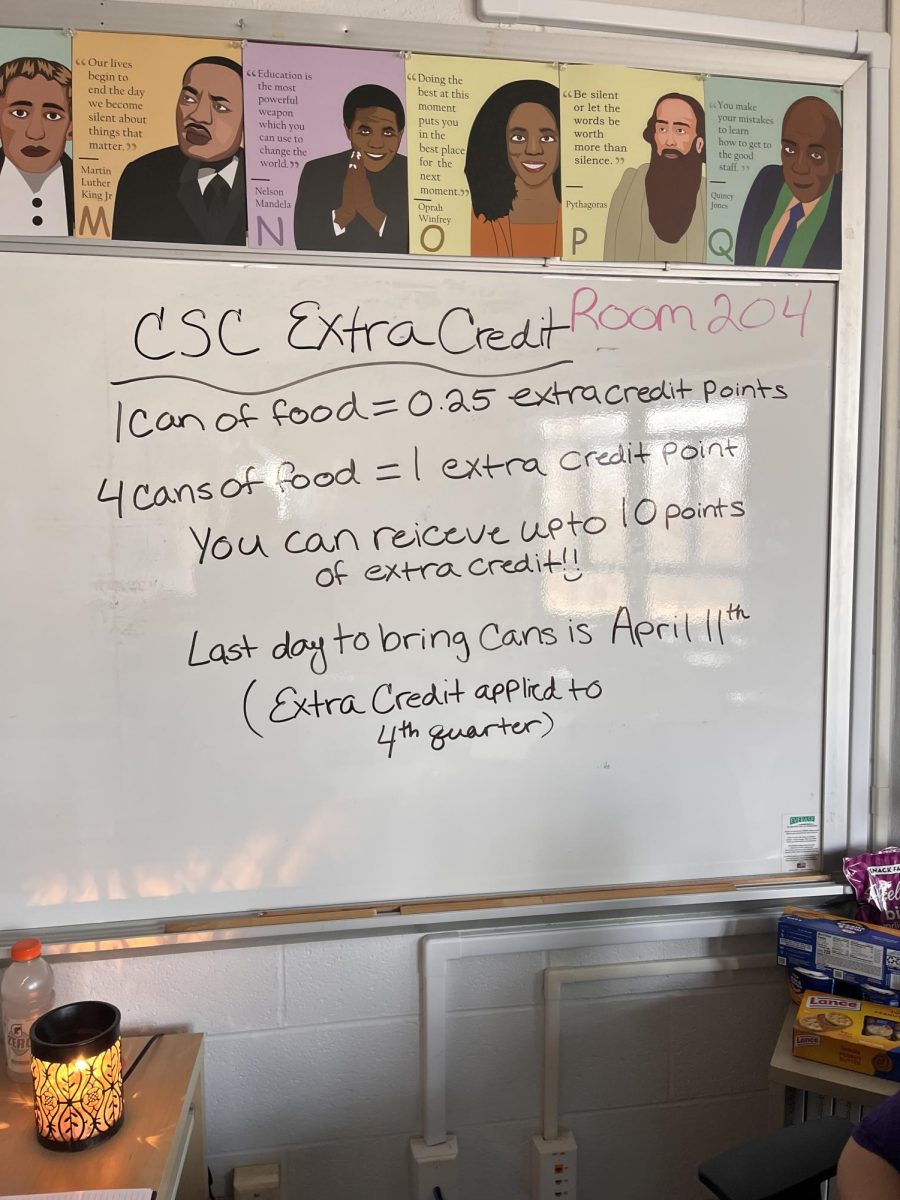 “Our lives
begin to
end the day
we become
silent about
things that
matter.”
Martin
Luther
King Jr
M
“Education is
the most
powerful
weapon
which you
can use to
change the
world.”
Nelson
Mandela
N
“Doing the
best at this
moment
puts you
in the
best place
for the
next
moment.”
Oprah
Winfrey
O
“Be silent
or let the
words be
worth
more than
silence.”
Pythagoras
P
“You make
your mistakes
to learn
how to get to
the good
staff.”
Quincy
Jones
Q
CSC Extra Credit Room 204
1 can of food = 0.25 extra credit points
4 cans of food = 1 extra credit point
You can reiceve upto 10 points
of extra credit!!
Last day to bring Cans is April 11th
(Extra Credit applied to
4th quarter)
EVERASE
SNACK
Lance
Lance
PEANUT
BUTTER
ZERO